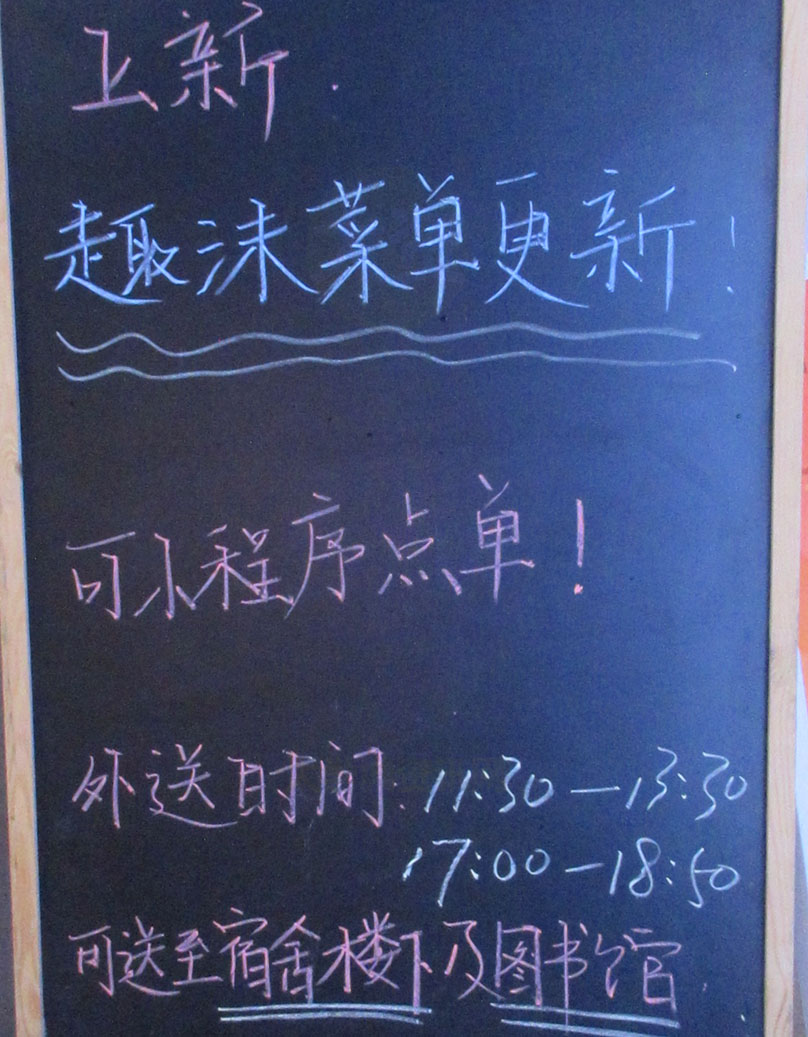 上新.
趣沫菜单更新!
可小程序点单!
外送时间:11:30—13:30
17:00—18:50
可送至宿舍楼下及图书馆.